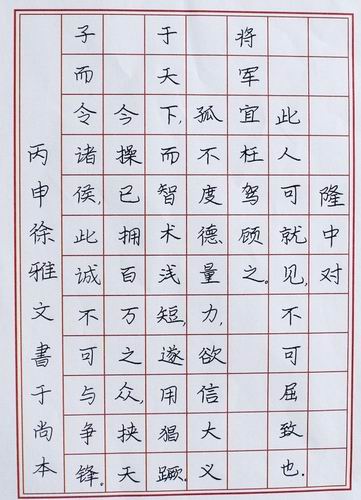 隆中对
此人可就见,不可屈致也。
将军宜枉驾顾之。
孤不度德量力,欲信大义
于天下,而智术浅短,遂用猖蹶。
今操已拥百万之众,挟天
子而令诸侯,此诚不可与争锋。
丙申徐雅文書于尚本